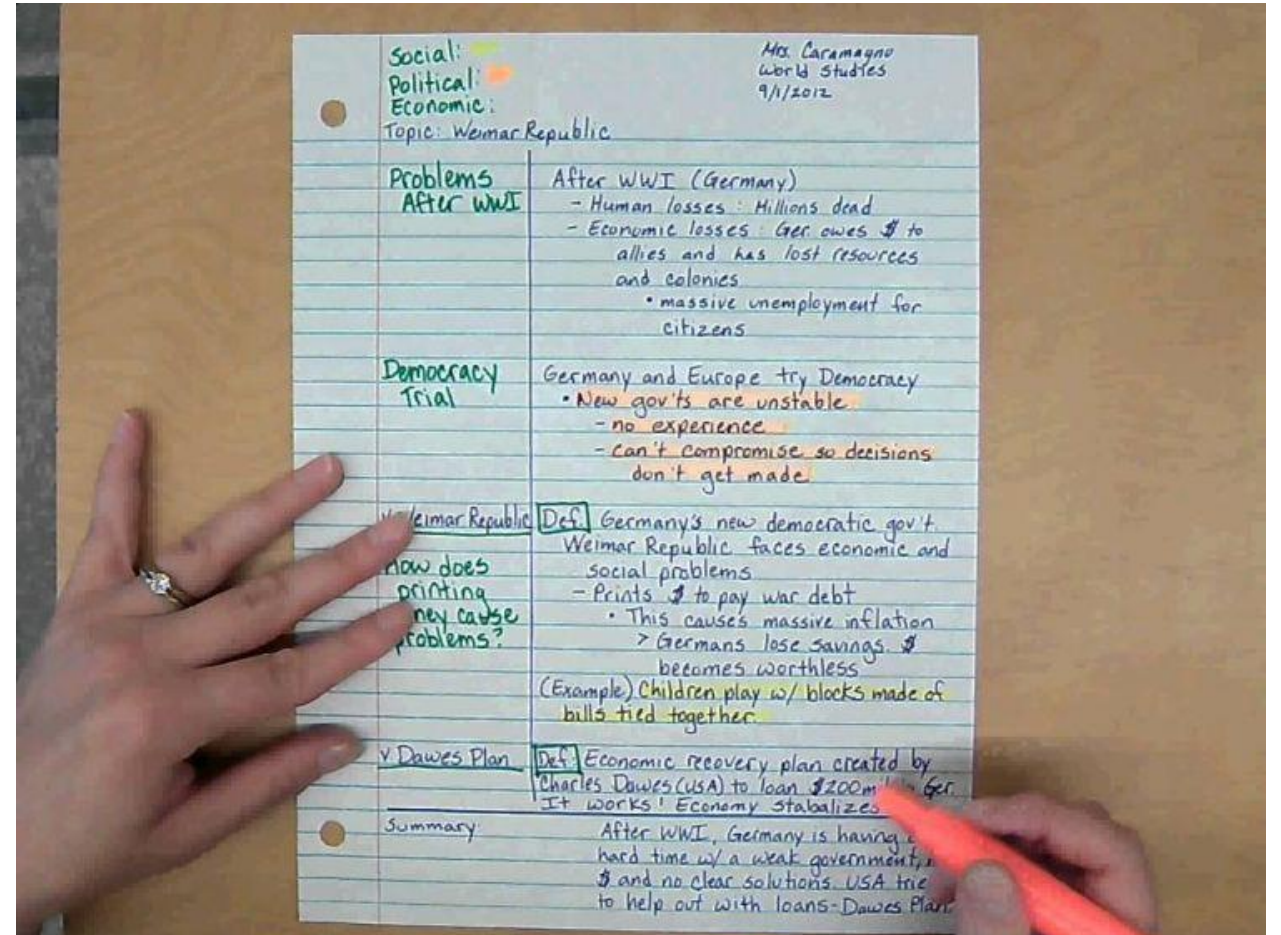 Social:
Political:
Economic:
Mrs. Caramagno
World Studies
9/1/2012
Topic: Weimar Republic
Problems
After WWI
After WWI (Germany)
- Human losses: Millions dead
- Economic losses: Ger. owes $ to
allies and has lost resources
and colonies
• massive unemployment for
citizens
Democracy
Trial
Germany and Europe try Democracy
• New gov'ts are unstable
- no experience
- can't compromise so decisions
don't get made
Weimar Republic
How does
printing
problems?
cause
Def. Germany's new democratic gov't.
Weimar Republic faces economic and
social problems
- Prints $ to pay war debt
• This causes massive inflation
> Germans lose savings. $
becomes worthless
(Example) Children play w/ blocks made of
bills tied together.
v Dawes Plan
Def. Economic recovery plan created by
Charles Dawes (USA) to loan $200 Ger.
It works! Economy stabalizes
Summary
After WWI, Germany is having
hard time w/ a weak government,
$ and no clear solutions. USA
to help out with loans-Dawes Plan.